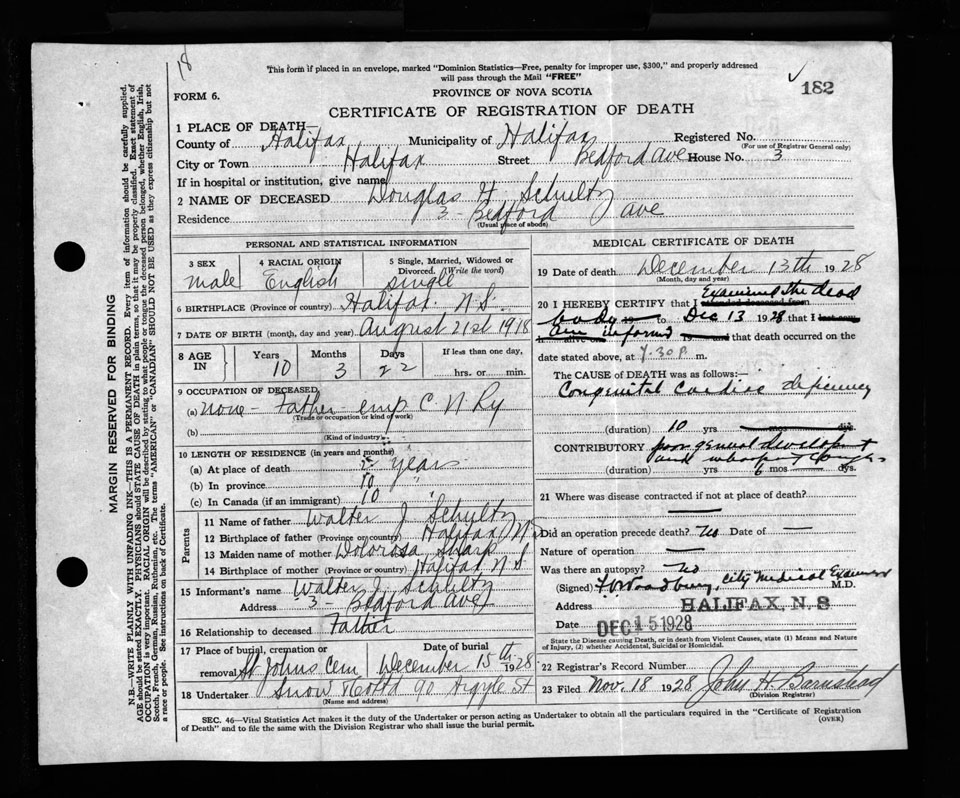 18
This form if placed in an envelope, marked "Dominion Statistics—Free, penalty for improper use, $300," and properly addressed
will pass through the Mail "FREE"
182
FORM 6.
PROVINCE OF NOVA SCOTIA
CERTIFICATE OF REGISTRATION OF DEATH
1 PLACE OF DEATH
County of Halifax Municipality of Halifax Registered No.
(For use of Registrar General only)
City or Town Halifax Street Bedford Ave House No. 3
If in hospital or institution, give name
2 NAME OF DECEASED Douglas H Schultz
Residence 3 - Bedford Ave
(Usual place of abode)
PERSONAL AND STATISTICAL INFORMATION
3 SEX 4 RACIAL ORIGIN 5 Single, Married, Widowed or
Divorced. (Write the word)
male English single
6 BIRTHPLACE (Province or country) Halifax N.S.
7 DATE OF BIRTH (month, day and year) August 21st 1918
8 AGE IN Years Months Days If less than one day,
10 3 22 hrs. or min.
9 OCCUPATION OF DECEASED
(a) none - Father emp C. N. Ry
(Trade or occupation or kind of work)
(b)
(Kind of industry)
10 LENGTH OF RESIDENCE (in years and months)
(a) At place of death 2 years
(b) In province 10 "
(c) In Canada (if an immigrant) 10 "
Parents
11 Name of father Walter J. Schultz
12 Birthplace of father (Province or country) Halifax N.S
13 Maiden name of mother Dolorosa Sharp
14 Birthplace of mother (Province or country) Halifax N.S.
15 Informant's name Walter J Schultz
Address 3 - Bedford Ave
16 Relationship to deceased Father
17 Place of burial, cremation or removal Date of burial
St Johns Cem December 15th 1928
18 Undertaker Snow & Co Ltd 90 Argyle St
(Name and address)
MEDICAL CERTIFICATE OF DEATH
19 Date of death December 13th 1928
(Month, day and year)
20 I HEREBY CERTIFY that I attended deceased from Examined the dead
body to Dec 13 1928 that I last saw
h alive on am informed and that death occurred on the
date stated above, at 7.30 P. m.
The CAUSE of DEATH was as follows:—
Congenital cardiac
(duration) 10 yrs mos dys.
CONTRIBUTORY poor general development
and whooping cough
(duration) yrs 6 mos dys.
21 Where was disease contracted if not at place of death?
Did an operation precede death? No Date of
Nature of operation
Was there an autopsy? No
(Signed) Woodbury, City Medical Examiner M.D.
Address HALIFAX, N. S
Date DEC 15 1928
State the Disease causing Death, or in death from Violent Causes, state (1) Means and Nature
of Injury, (2) whether Accidental, Suicidal or Homicidal.
22 Registrar's Record Number
23 Filed Nov. 18 1928 John H Barnstead
(Division Registrar)
SEC. 46—Vital Statistics Act makes it the duty of the Undertaker or person acting as Undertaker to obtain all the particulars required in the "Certificate of Registration
of Death" and to file the same with the Division Registrar who shall issue the burial permit.
(OVER)
MARGIN RESERVED FOR BINDING
N.B.—WRITE PLAINLY WITH UNFADING INK—THIS IS A PERMANENT RECORD. Every item of information should be carefully supplied.
AGE should be stated EXACTLY. PHYSICIANS should STATE CAUSE OF DEATH in plain terms, so that it may be properly classified. Exact statement of
OCCUPATION is very important. RACIAL ORIGIN will be described by stating to what people or tongue the deceased person belonged, whether English, Irish,
Scotch, French, German, Russian, Ruthenian, etc. The terms "AMERICAN" or "CANADIAN" SHOULD NOT BE USED as they express citizenship but not
a race or people. See instructions on back of Certificate.